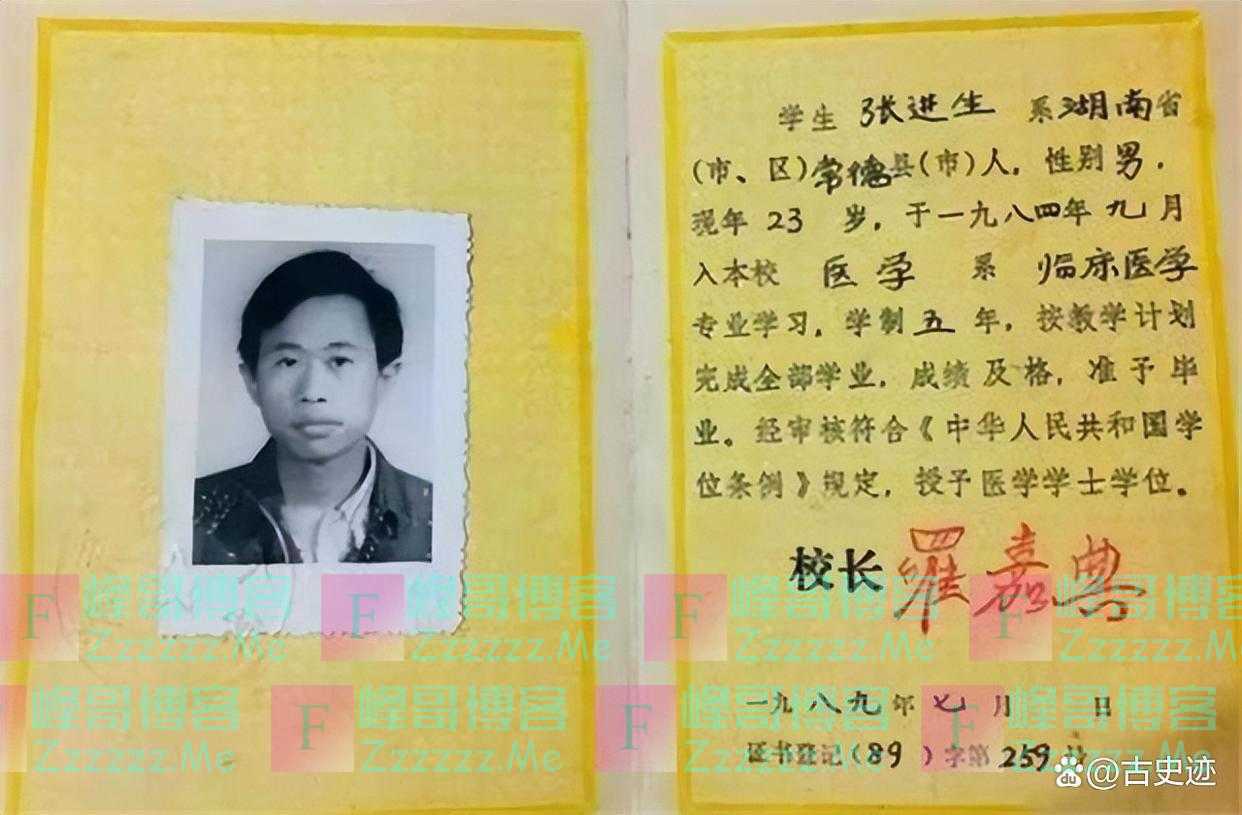 学生 张进生 系湖南省
(市、区)常德县(市)人，性别男．
现年 23 岁，于一九八四年九月
入本校 医学 系 临床医学
专业学习，学制五年，按教学计划
完成全部学业，成绩及格，准予毕
业。经审核符合《中华人民共和国学
位条例》规定，授予医学学士学位。
校长 罗嘉典
一九八九年七月 日
证书登记(89)字第259号
F 峰哥博客 Zzzzzz.Me
F 峰哥博客 Zzzzzz.Me
F 峰哥博客 Zzzzzz.Me
F 峰哥博客 Zzzzzz.Me
峰哥博客 Zzzzzz.Me
F 峰哥博客 Zzzzzz.Me
F 峰哥博客 Zzzzzz.Me
F 峰哥博客 Zzzzzz.Me
Bai du @古史迹